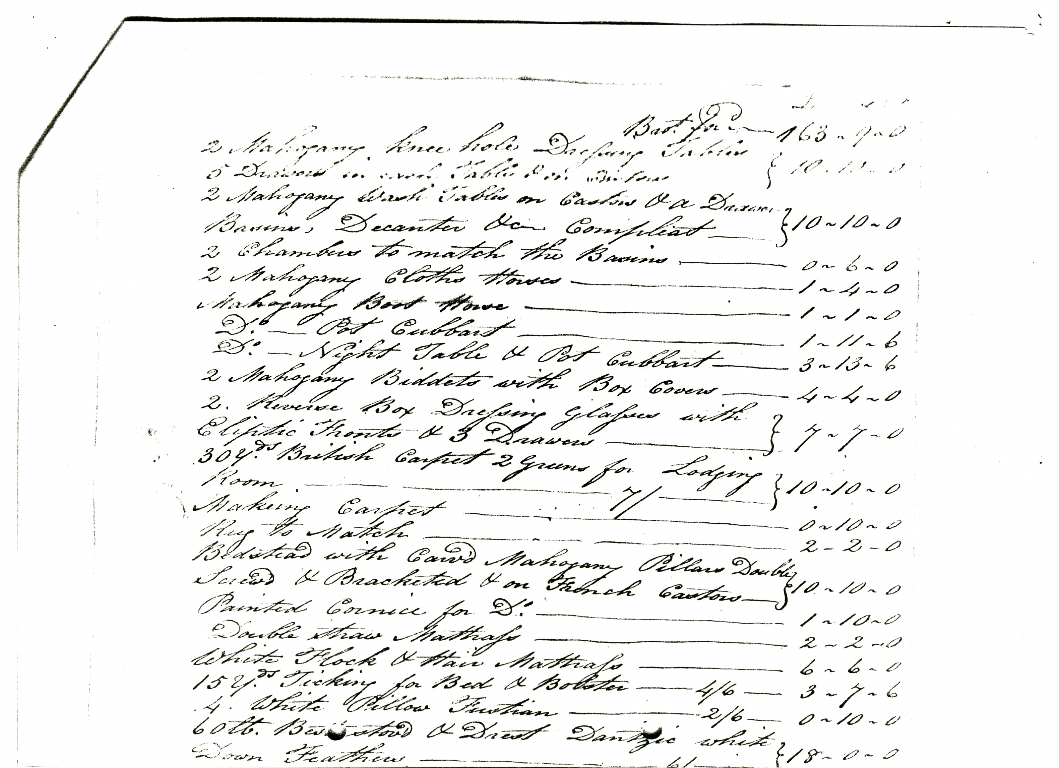 Brot. for.d — 163 ~ 9 ~ 0
2 Mahogany knee hole Dressing Tables
5 Drawers in each Table & on Castors } 10 ~ 10 ~ 0
2 Mahogany Wash Tables on Castors & a Drawer
Basins, Decanter &c Compleat — } 10 ~ 10 ~ 0
2 Chambers to match the Basins — 0 ~ 6 ~ 0
2 Mahogany Cloths Horses — 1 ~ 4 ~ 0
Mahogany Boot Horse — 1 ~ 1 ~ 0
Do. — Pot Cubbart — 1 ~ 11 ~ 6
Do. — Night Table & Pot Cubbart — 3 ~ 13 ~ 6
2 Mahogany Biddets with Box Covers — 4 ~ 4 ~ 0
2. Reverse Box Dressing Glasses with
Eliptic Fronts & 3 Drawers — } 7 ~ 7 ~ 0
30 Yds. British Carpet 2 Greens for Lodging
Room — 7/ — } 10 ~ 10 ~ 0
Making Carpet — 0 ~ 10 ~ 0
Rug to Match — 2 - 2 - 0
Bedstead with Carv'd Mahogany Pillars Double
Screw'd & Bracketed & on French Castors — } 10 ~ 10 ~ 0
Painted Cornice for Do. — 1 ~ 10 ~ 0
Double straw Mathrass — 2 ~ 2 ~ 0
White Flock & Hair Mathrass — 6 ~ 6 ~ 0
15 Yds. Ticking for Bed & Bolster — 4/6 — 3 ~ 7 ~ 6
4. White Pillow Fustian — 2/6 — 0 ~ 10 ~ 0
60 lb. & Drest Dantzic white
Down Feathers — 6/ — } 18 ~ 0 ~ 0